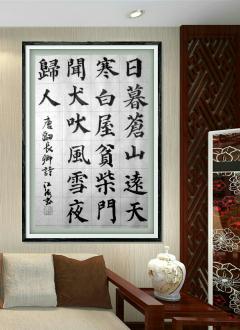 日暮蒼山遠天
寒白屋貧柴門
聞犬吠風雪夜
歸人
唐劉長卿詩